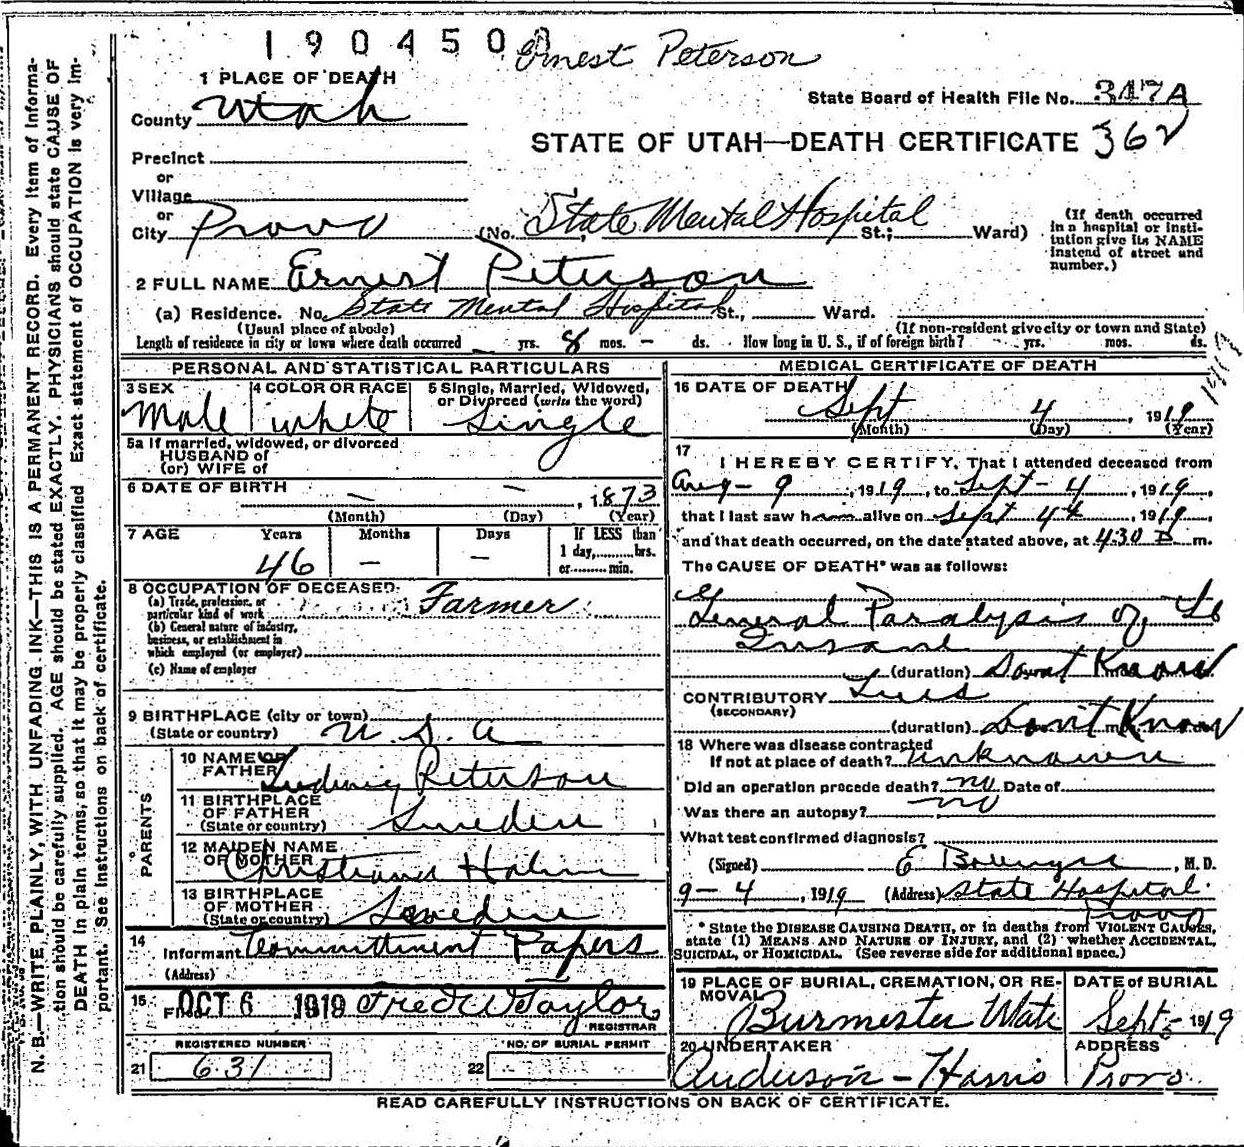 1904500
Ernest Peterson
1 PLACE OF DEATH
State Board of Health File No. 347A
County Utah
STATE OF UTAH—DEATH CERTIFICATE 362
Precinct
or
Village
or
City Provo (No. State Mental Hospital St.; Ward)
(If death occurred in a hospital or institution give its NAME instead of street and number.)
2 FULL NAME Ernest Peterson
(a) Residence. No. State Mental Hospital St., Ward.
(Usual place of abode) (If non-resident give city or town and State)
Length of residence in city or town where death occurred yrs. 8 mos. - ds. How long in U. S., if of foreign birth? yrs. mos. ds.
PERSONAL AND STATISTICAL PARTICULARS
3 SEX 4 COLOR OR RACE 5 Single, Married, Widowed, or Divorced (write the word)
Male white Single
5a If married, widowed, or divorced
HUSBAND of
(or) WIFE of
6 DATE OF BIRTH — — , 1873
(Month) (Day) (Year)
7 AGE Years Months Days If LESS than
1 day,........hrs.
or........min.
46 — —
8 OCCUPATION OF DECEASED
(a) Trade, profession, or particular kind of work Farmer
(b) General nature of industry, business, or establishment in which employed (or employer)
(c) Name of employer
9 BIRTHPLACE (city or town)
(State or country) U. S. A
PARENTS
10 NAME OF FATHER Ludwig Peterson
11 BIRTHPLACE OF FATHER (State or country) Sweden
12 MAIDEN NAME OF MOTHER Christiana Holm
13 BIRTHPLACE OF MOTHER (State or country) Sweden
14 Informant Committment Papers
(Address)
15 Filed OCT 6 1919 Fred W Taylor
REGISTRAR
REGISTERED NUMBER NO. OF BURIAL PERMIT
21 631 22
MEDICAL CERTIFICATE OF DEATH
16 DATE OF DEATH
Sept 4, 1919
(Month) (Day) (Year)
17
I HEREBY CERTIFY, That I attended deceased from
Aug - 9, 1919, to Sept - 4, 1919,
that I last saw him alive on Sept 4th, 1919
and that death occurred, on the date stated above, at 430 P m.
The CAUSE OF DEATH* was as follows:
General Paralysis of the
Insane
(duration) Don't Know
CONTRIBUTORY Lues
(SECONDARY)
(duration) Don't Know
18 Where was disease contracted
If not at place of death? unknown
Did an operation precede death? no Date of
Was there an autopsy? no
What test confirmed diagnosis?
(Signed) G M. D.
9-4, 1919 (Address) State Hospital.
Provo
* State the DISEASE CAUSING DEATH, or in deaths from VIOLENT CAUSES,
state (1) MEANS AND NATURE OF INJURY, and (2) whether ACCIDENTAL,
SUICIDAL, or HOMICIDAL. (See reverse side for additional space.)
19 PLACE OF BURIAL, CREMATION, OR REMOVAL DATE OF BURIAL
Burmester Utah Sept 5- 1919
20 UNDERTAKER ADDRESS
Anderson - Harris Provo
READ CAREFULLY INSTRUCTIONS ON BACK OF CERTIFICATE.
N. B.—WRITE, PLAINLY, WITH UNFADING INK—THIS IS A PERMANENT RECORD. Every item of information should be carefully supplied. AGE should be stated EXACTLY. PHYSICIANS should state CAUSE OF DEATH in plain terms, so that it may be properly classified. Exact statement of OCCUPATION is very important. See instructions on back of certificate.